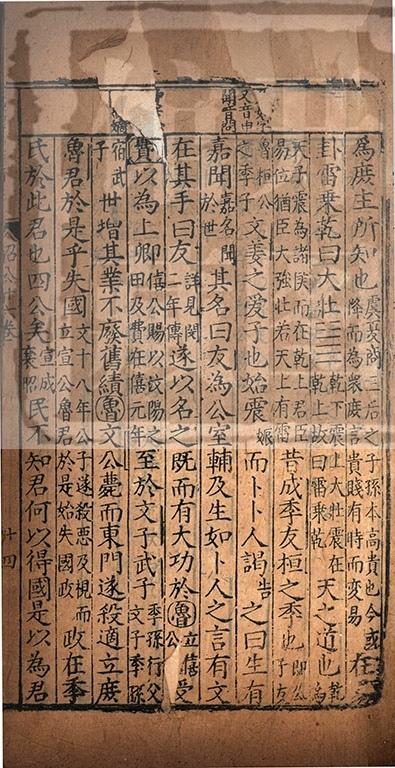 為庶主所知也虞夏商三后之子孫本高貴也今或降而為衆庶言貴賤有時而變易在易
卦雷乗乾曰大壯䷡乾下震上大壯震在乾上故曰雷乗乾天之道也乾為
天子震為諸侯而在乾上君臣易位猶臣大強壯若天上有雷昔成季友桓之季也即公子友
魯桓公之季子文姜之愛子也始震娠而卜卜人謁告之曰生有
又音由
聞音問
嘉聞嘉名聞於世其名曰友為公室輔及生如卜人之言有文
在其手曰友詳見閔二年傳遂以名之既而有大功於魯立僖公受
費以為上卿僖公賜以汶陽之田及費在僖元年至於文子武子季孫行父文子季孫
宿武子世增其業不廢舊績魯文公薨而東門遂殺適立庶
嫡
魯君於是乎失國文十八年公子遂殺惡及視而立宣公魯君於是始失國政政在季
氏於此君也四公矣宣成襄昭民不知君何以得國是以為君
廿四